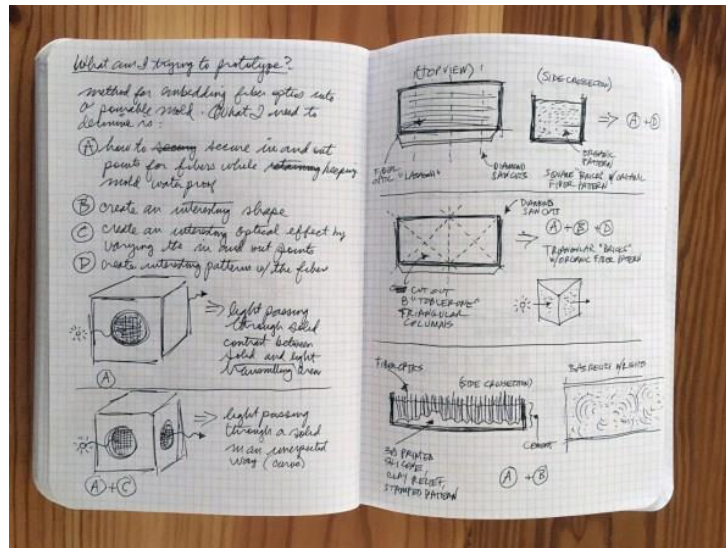 What am I trying to prototype?
method for embedding fiber optics into
a pourable mold. What I need to
determine is:
A how to secure in and out
points for fibers while keeping
mold water proof
B create an interesting shape
C create an interesting optical effect by
varying the in and out points
D create interesting patterns w/ the fiber
light passing
through solid
contrast between
solid and light
transmitting area
A
light passing
through a solid
in an unexpected
way (curve)
A + C
(TOP VIEW)
(SIDE CROSSECTION)
⇒ A + D
FIBER
OPTIC "LASAGNA"
DIAMOND
SAW CUTS
ORGANIC
PATTERN
SQUARE "BRICKS" W/ ORGANIC
FIBER PATTERN
DIAMOND
SAW CUTS
⇒ A + B + D
TRIANGULAR "BRICKS"
W/ ORGANIC FIBER PATTERN
CUT OUT
8 "TOBLERONE"
TRIANGULAR
COLUMNS
FIBER OPTICS
(SIDE CROSSECTION)
CEMENT
3D PRINTED
SILICONE,
CLAY RELIEF,
STAMPED PATTERN
A + B